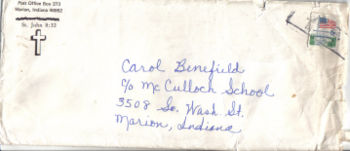 Post Office Box 373
Marion, Indiana 46952
St. John 8:32
Carol Benefield
c/o McCulloch School
3508 So. Wash St.
Marion, Indiana